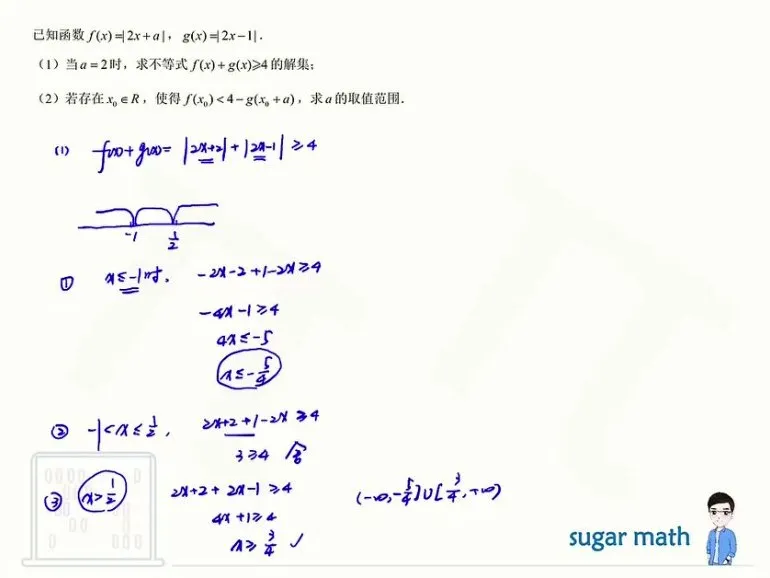 已知函数 f(x)=|2x+a|，g(x)=|2x−1|．
（1）当 a=2 时，求不等式 f(x)+g(x)≥4 的解集；
（2）若存在 x₀∈R，使得 f(x₀)<4−g(x₀+a)，求 a 的取值范围．
(1) f(x)+g(x)= |2x+2|+|2x-1| ≥4
-1 1/2
① x≤-1时, -2x-2+1-2x≥4
-4x-1≥4
4x≤-5
x≤-5/4
② -1<x≤1/2, 2x+2+1-2x≥4
3≥4 舍
③ x>1/2 2x+2+2x-1≥4 (-∞,-5/4]∪[3/4,+∞)
4x+1≥4
x≥3/4 ✓
sugar math